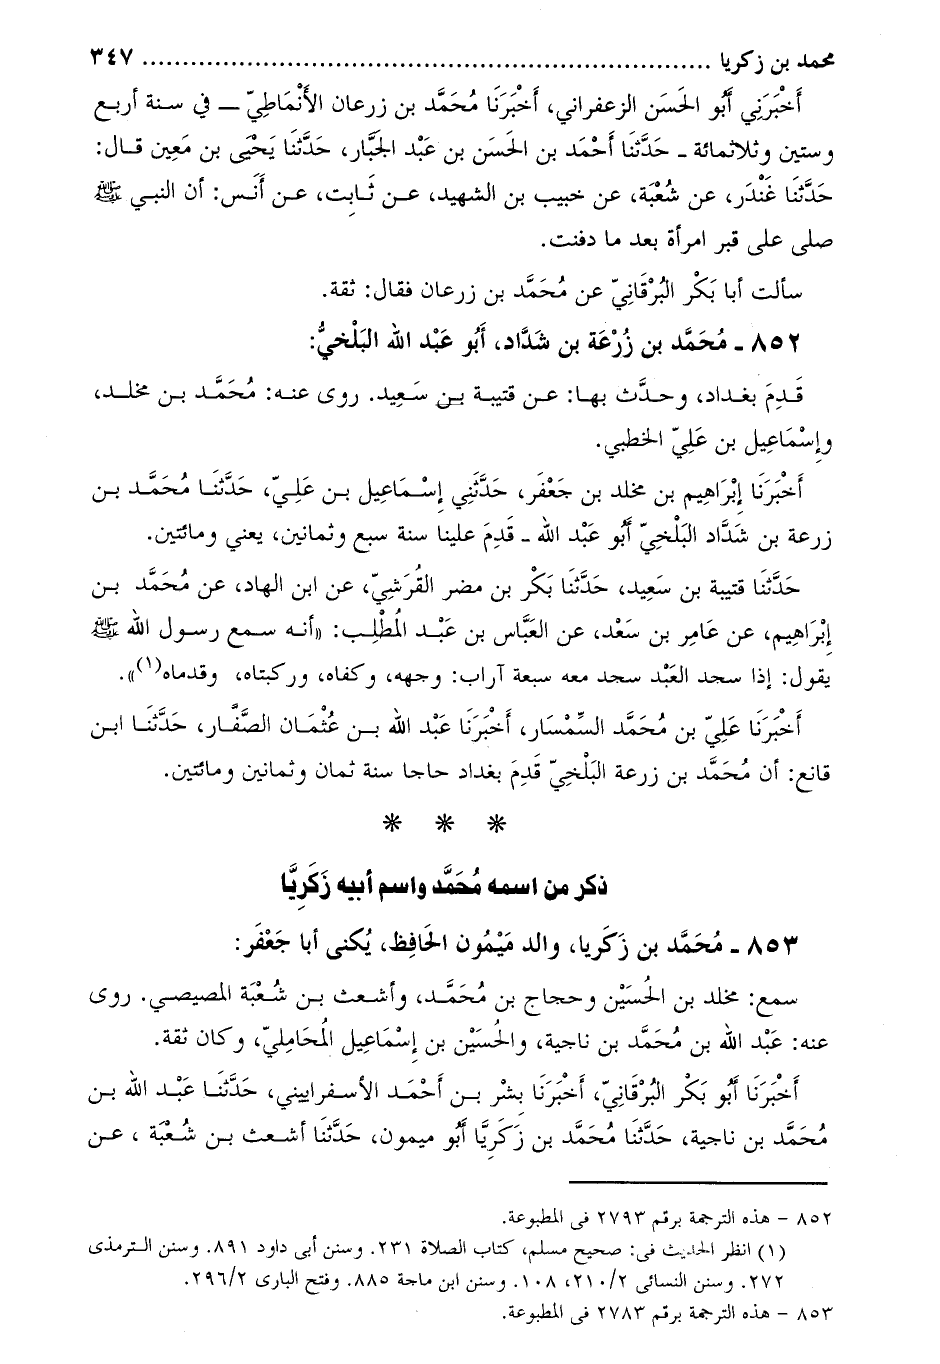 محمد بن زكريا ........................................................................ ٣٤٧
أَخْبَرَنِي أَبُو الحَسَن الزعفراني، أَخْبَرَنَا مُحَمَّد بن زرعان الأَنْمَاطِيّ ــ في سنة أربع
وستين وثلاثمائة ـ حَدَّثَنَا أَحْمَد بن الحَسَن بن عَبْد الجَبَّار، حَدَّثَنَا يَحْيَى بن مَعِين قـال:
حَدَّثَنَا غُنْدَر، عن شُعْبَة، عن حبيب بن الشهيد، عـن ثَـابِت، عـن أَنَس: أن النبي ﷺ
صلى على قبر امرأة بعد ما دفنت.
سألت أبا بَكْر البُرْقَانِيّ عن مُحَمَّد بن زرعان فقال: ثقة.
٨٥٢ ـ مُحَمَّد بن زُرْعَة بن شَدَّاد، أَبُو عَبْد الله البَلْخيُّ:
قَـدِمَ بغـداد، وحـدَّث بهـا: عـن قتيبة بـن سَـعِيد. روى عنـه: مُحَمَّـد بـن مخلـد،
وإِسْمَاعِيل بن عَلِيّ الخطبي.
أَخْبَرَنَا إِبْرَاهِيم بن مخلد بن جَعْفَر، حَدَّثَنِي إِسْـمَاعِيل بـن عَلِـيّ، حَدَّثَنَـا مُحَمَّـد بـن
زرعة بن شَدَّاد البَلْخِيّ أَبُو عَبْد الله ـ قَدِمَ علينا سنة سبع وثمانين، يعني ومائتين.
حَدَّثَنَا قتيبة بن سَعِيد، حَدَّثَنَا بَكْر بن مضر القُرَشِيّ، عن ابن الهاد، عن مُحَمَّد بـن
إِبْرَاهِيم، عن عَامِر بن سَعْد، عن العَبَّاس بن عَبْـد المُطَّلِـب: «أنـه سـمع رسـول الله ﷺ
يقول: إذا سجد العَبْد سجد معه سبعة آراب: وجهه، وكفاه، وركبتاه، وقدماه(١)».
أَخْبَرَنَا عَلِيّ بن مُحَمَّد السِّمْسَار، أَخْبَرَنَا عَبْد الله بـن عُثْمَـان الصَّفَّـار، حَدَّثَنَـا ابـن
قانع: أن مُحَمَّد بن زرعة البَلْخِيّ قَدِمَ بغداد حاجا سنة ثمان وثمانين ومائتين.
* * *
ذكر من اسمه مُحَمَّد واسم أبيه زَكَرِيَّا
٨٥٣ ـ مُحَمَّد بن زَكَريا، والد مَيْمُون الحَافِظ، يُكنى أبا جَعْفَر:
سمع: مخلد بن الحُسَيْن وحجاج بن مُحَمَّـد، وأشعث بـن شُـعْبَة المصيصـي. روى
عنه: عَبْد الله بن مُحَمَّد بن ناجية، والحُسَيْن بن إِسْمَاعِيل المُحَامِليّ، وكان ثقة.
أَخْبَرَنَا أَبُو بَكْر البُرْقَانِيّ، أَخْبَرَنَا بِشْر بـن أَحْمَـد الأسـفراييني، حَدَّثَنَـا عَبْـد الله بـن
مُحَمَّد بن ناجية، حَدَّثَنَا مُحَمَّد بن زَكَرِيَّا أَبُو ميمون، حَدَّثَنَا أشعث بـن شُـعْبَة ، عـن
٨٥٢ - هذه الترجمة برقم ٢٧٩٣ فى المطبوعة.
(١) انظر الحديث فى: صحيح مسلم، كتاب الصلاة ٢٣١. وسنن أبى داود ٨٩١. وسنن الترمذى
٢٧٢. وسنن النسائى ٢١٠/٢، ١٠٨. وسنن ابن ماجة ٨٨٥. وفتح البارى ٢٩٦/٢.
٨٥٣ - هذه الترجمة برقم ٢٧٨٣ فى المطبوعة.